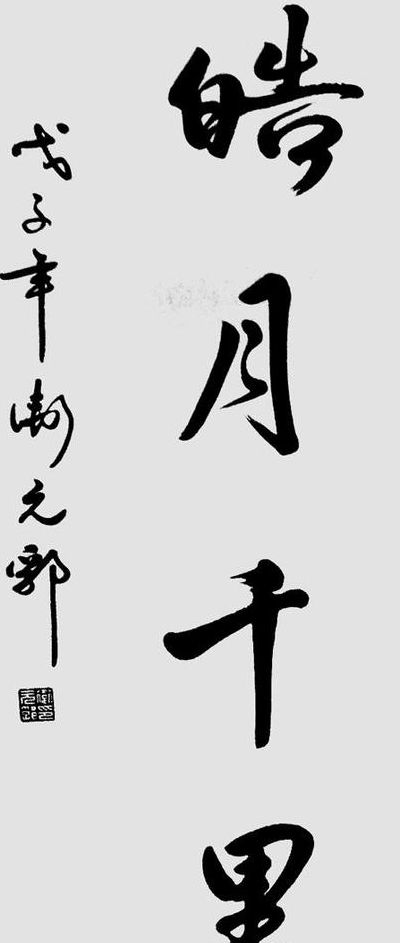 皓月千里
戊子年衛元郛